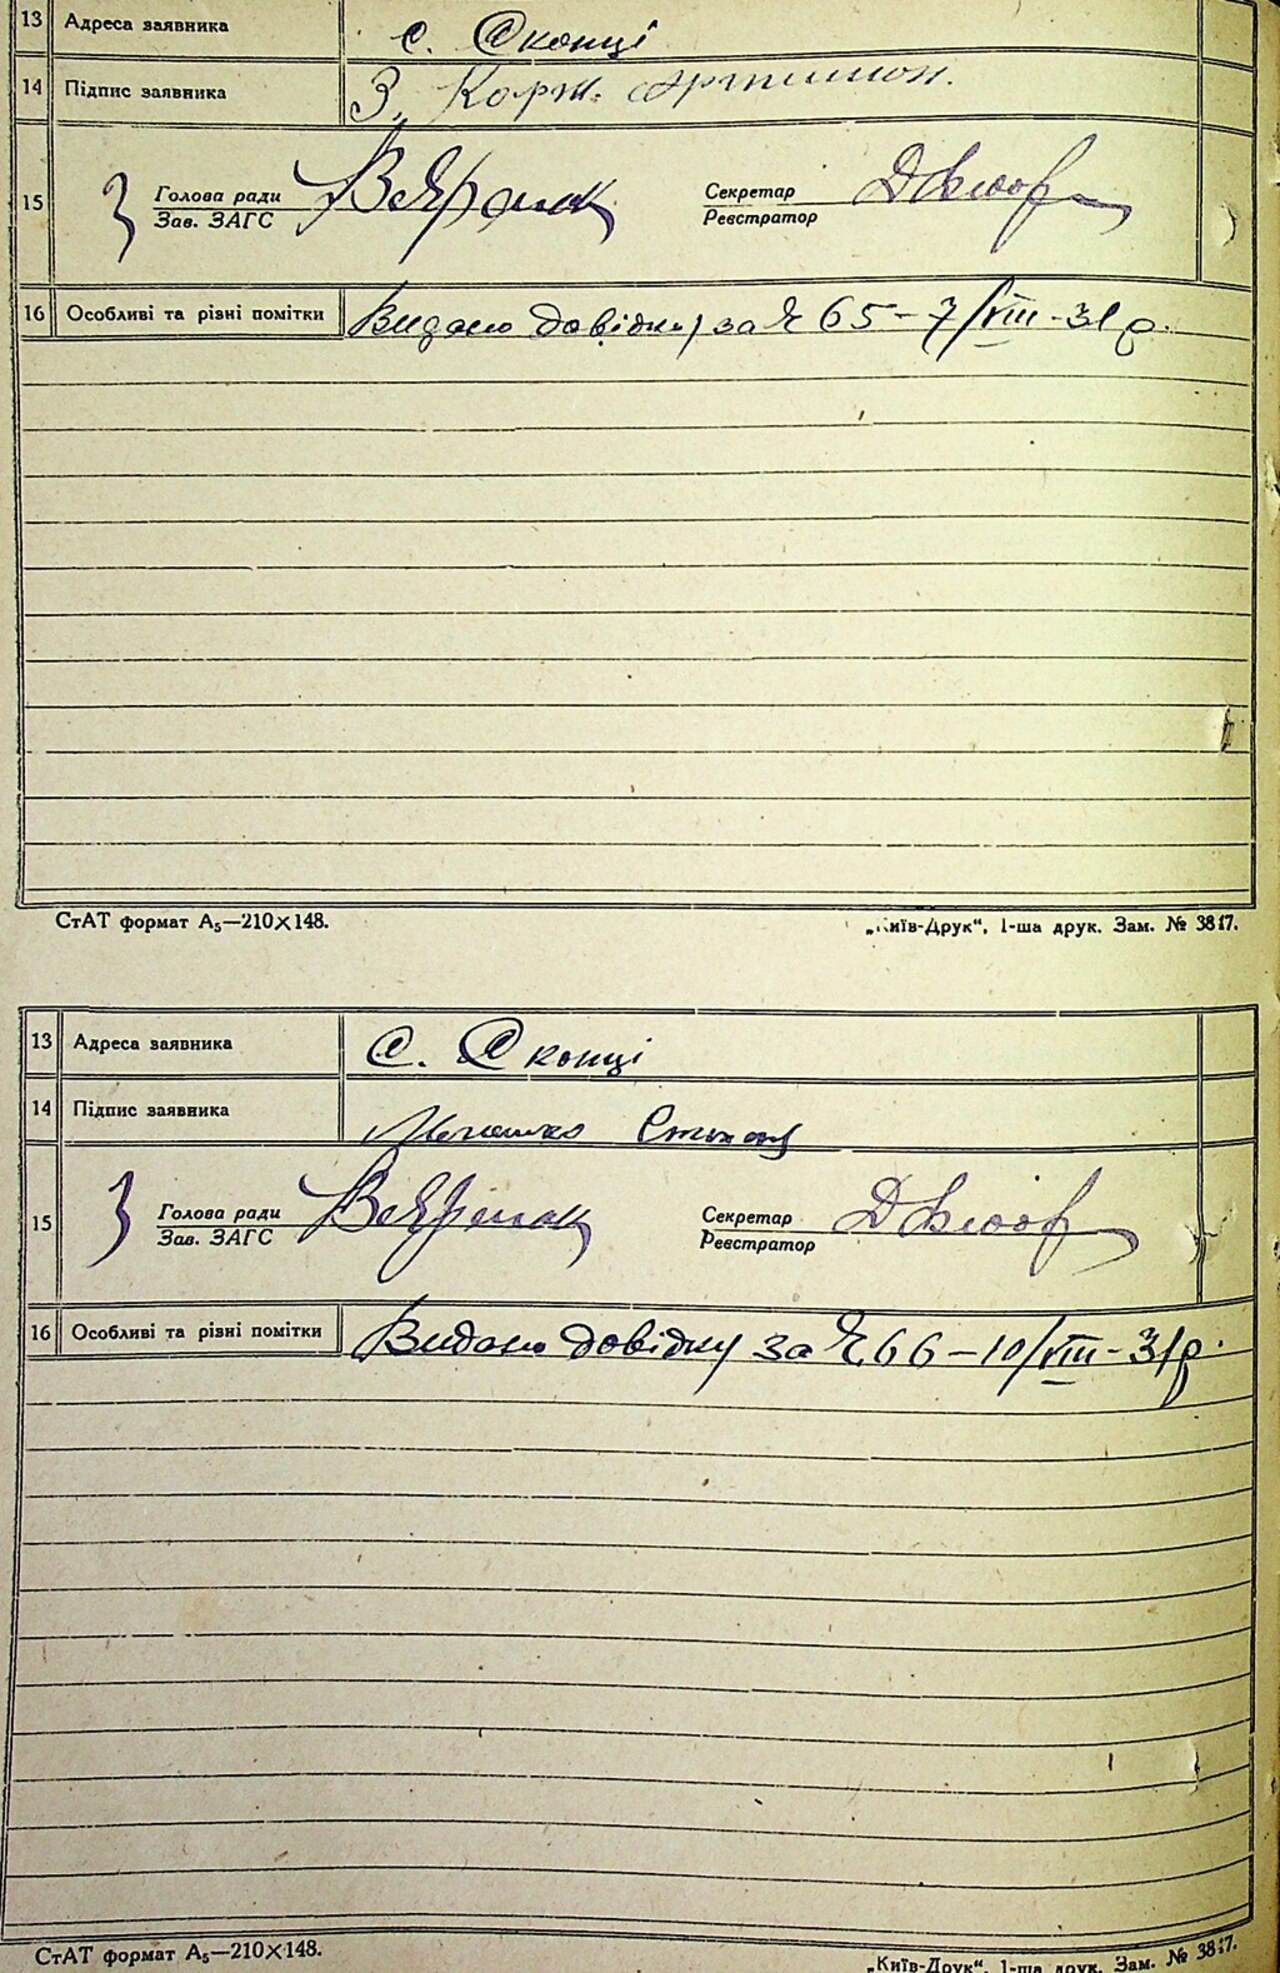 13 Адреса заявника с. Сконці
14 Підпис заявника З. Корж.
15 Голова ради Секретар
Зав. ЗАГС Реєстратор
16 Особливі та різні помітки Видано довідку за № 65-7/VIII-31 р.
СтАТ формат А5—210×148. „Київ-Друк“, 1-ша друк. Зам. № 3817.
13 Адреса заявника с. Сконці
14 Підпис заявника
15 Голова ради Секретар
Зав. ЗАГС Реєстратор
16 Особливі та різні помітки Видано довідку за № 66-10/VIII-31 р.
СтАТ формат А5—210×148. „Київ-Друк“, 1-ша друк. Зам. № 3817.